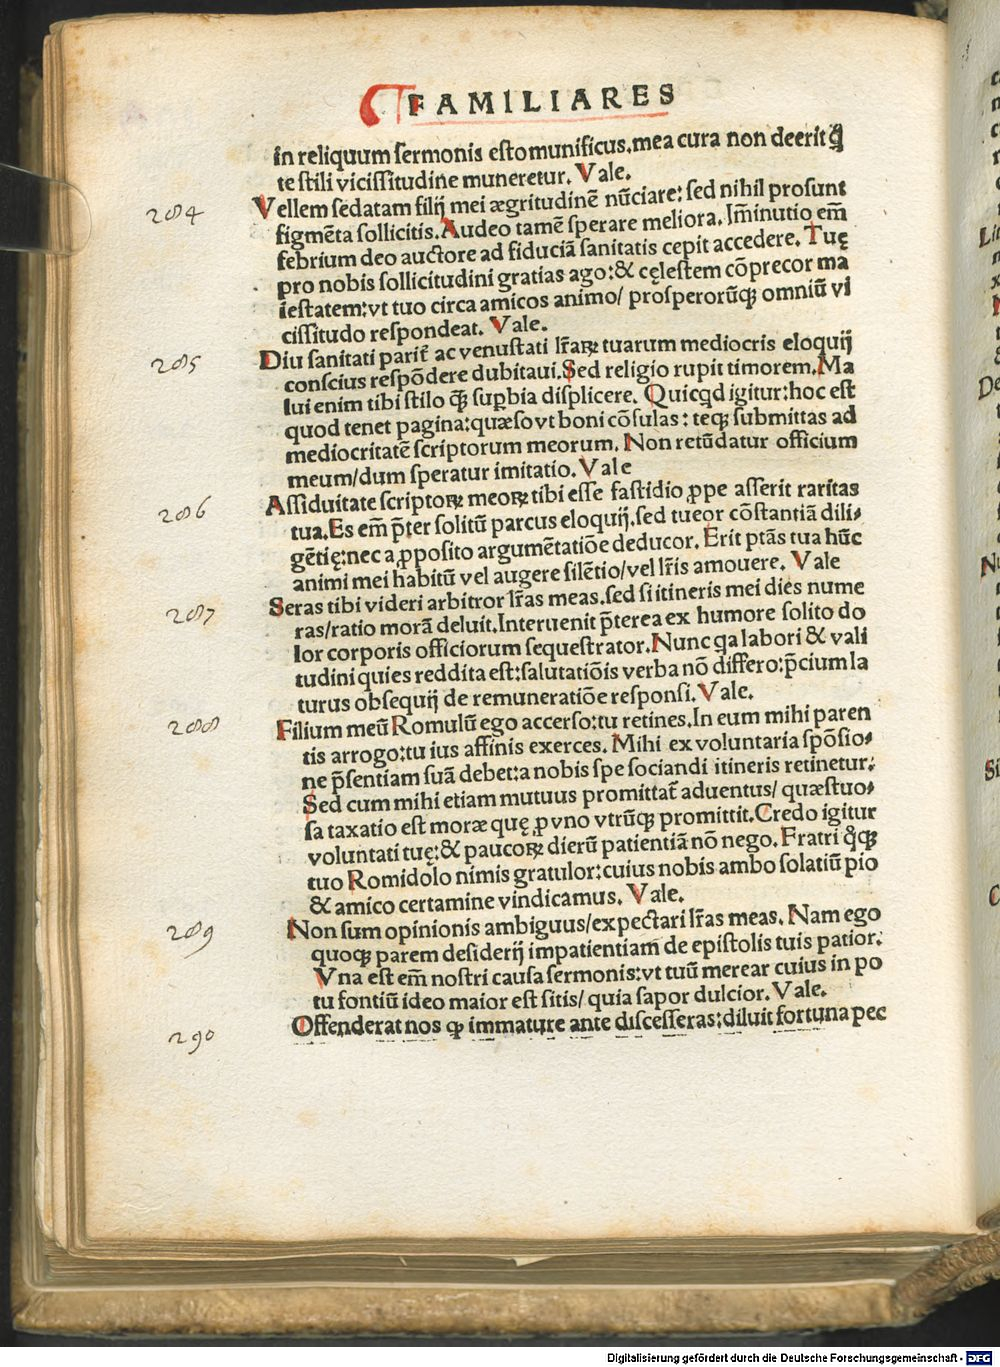 FAMILIARES
in reliquum sermonis esto munificus, mea cura non deerit q̃
te stili vicissitudine muneretur. Vale.
284
Vellem sedatam filij mei ægritudinẽ nũciare: sed nihil prosunt
figmẽta sollicitis. Audeo tamẽ sperare meliora. Im̃inutio em̃
febrium deo auctore ad fiduciã sanitatis cepit accedere. Tuę
pro nobis sollicitudini gratias ago: & cęlestem cõprecor ma
iestatem: vt tuo circa amicos animo/ prosperorũqꝫ omniũ vi
cissitudo respondeat. Vale.
285
Diu sanitati parit̃ ac venustati lr̃aꝝ tuarum mediocris eloquij
conscius respõdere dubitaui. Sed religio rupit timorem. Ma
lui enim tibi stilo q̃ꝫ suꝑbia displicere. Quicqd igitur: hoc est
quod tenet pagina: quæso vt boni cõsulas: teqꝫ submittas ad
mediocritatẽ scriptorum meorum. Non retũdatur officium
meum/dum speratur imitatio. Vale
286
Assiduitate scriptoꝝ meoꝝ tibi esse fastidio ꝓpe asserit raritas
tua. Es em̃ p̃ter solitũ parcus eloquij. sed tueor cõstantiã dili⸗
gẽtię: nec a ꝓposito argumẽtatiõe deducor. Erit ptãs tua hũc
animi mei habitũ vel augere silẽtio/vel lr̃is amouere. Vale
287
Seras tibi videri arbitror lr̃as meas. sed si itineris mei dies nume
ras/ratio morã deluit. Interuenit p̃terea ex humore solito do
lor corporis officiorum sequestrator. Nunc qa labori & vali
tudini quies reddita est: salutatiõis verba nõ differo: p̃cium la
turus obsequij de remuneratiõe responsi. Vale.
288
Filium meũ Romulũ ego accerso: tu retines. In eum mihi paren
tis arrogo: tu ius affinis exerces. Mihi ex voluntaria spõsio⸗
ne p̃sentiam suã debet: a nobis spe sociandi itineris retinetur:
Sed cum mihi etiam mutuus promittat̃ aduentus/ quæstuo⸗
sa taxatio est moræ quę ꝓ vno vtrũqꝫ promittit. Credo igitur
voluntati tuę: & paucoꝝ dierũ patientiã nõ nego. Fratri q̊qꝫ
tuo Romidolo nimis gratulor: cuius nobis ambo solatiũ pio
& amico certamine vindicamus. Vale.
289
Non sum opinionis ambiguus/expectari lr̃as meas. Nam ego
quoqꝫ parem desiderij impatientiam de epistolis tuis patior.
Vna est em̃ nostri causa sermonis: vt tuũ merear cuius in po
tu fontiũ ideo maior est sitis/ quia sapor dulcior. Vale.
290
Offenderat nos ꝙ immature ante discesseras: diluit fortuna pec
Digitalisierung gefördert durch die Deutsche Forschungsgemeinschaft - DFG